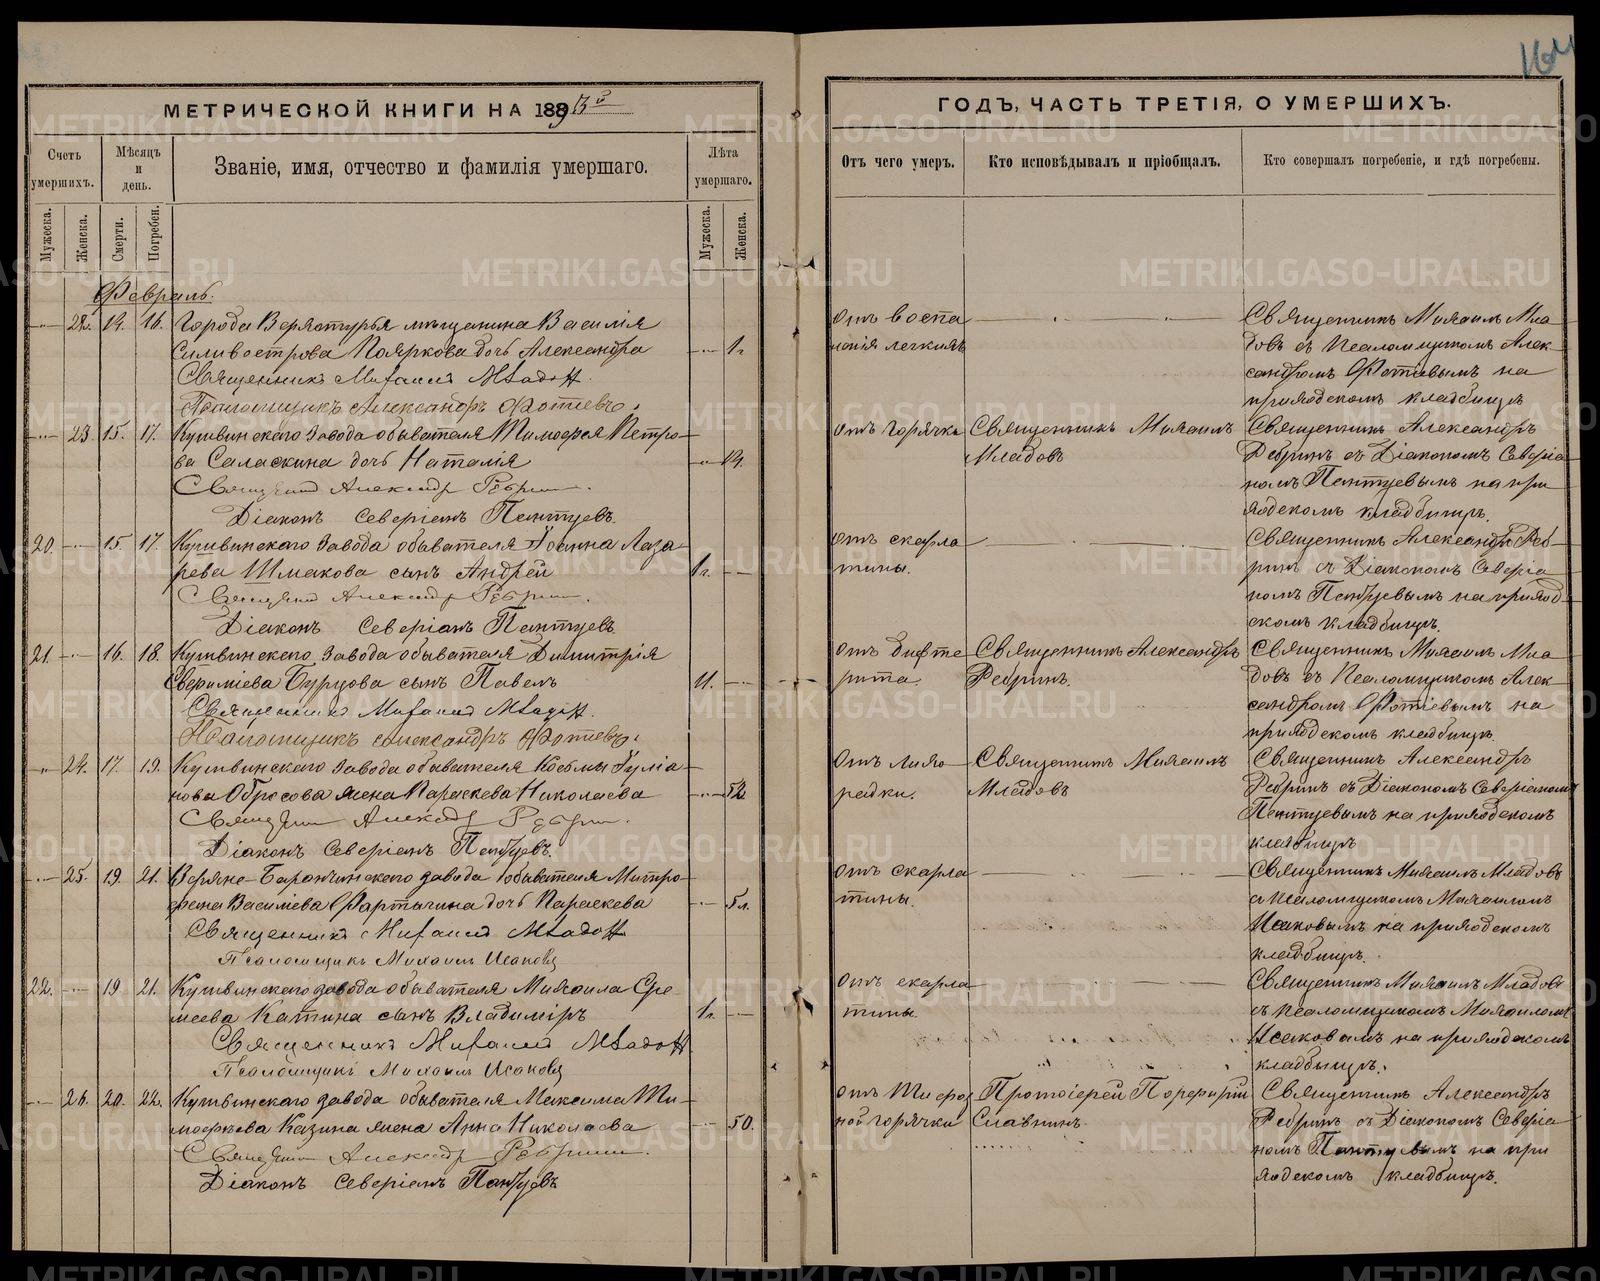 164
МЕТРИЧЕСКОЙ КНИГИ НА 1893й
ГОДЪ, ЧАСТЬ ТРЕТІЯ, О УМЕРШИХЪ.
Счетъ умершихъ.
Мѣсяцъ и день.
Званіе, имя, отчество и фамилія умершаго.
Лѣта умершаго.
Отъ чего умеръ.
Кто исповѣдывалъ и пріобщалъ.
Кто совершалъ погребеніе, и гдѣ погребены.
Мужеска.
Женска.
Смерти.
Погребен.
Мужеска.
Женска.
Февраль.
22. 14. 16. Города Верхотурья мѣщанина Василія
Силивострова Пояркова дочь Александра 1г
Священникъ Михаилъ Младовъ.
Псаломщикъ Александръ Фотіевъ.
отъ воспа
ленія легкихъ
Священникъ Михаилъ Мла
довъ съ псаломщикомъ Алек
сандромъ Фотіевымъ на
приходскомъ кладбищѣ
23. 15. 17. Кушвинскаго завода обывателя Тимофея Петро-
ва Саласкина дочь Наталія 14.
Священникъ Александръ Ребринъ.
Діаконъ Северіанъ Пантуевъ.
отъ горячки
Священникъ Михаилъ
Младовъ
Священникъ Александръ
Ребринъ съ Діакономъ Северіа
номъ Пантуевымъ на при
ходскомъ кладбищѣ.
20. 15. 17. Кушвинскаго завода обывателя Іоанна Лаза-
рева Шмакова сынъ Андрей 1г.
Священникъ Александръ Ребринъ.
Діаконъ Северіанъ Пантуевъ.
отъ скарла
тины.
Священникъ Александръ Реб-
ринъ съ Діакономъ Северіа
номъ Пантуевымъ на приход
скомъ кладбищѣ.
21. 16. 18. Кушвинскаго завода обывателя Димитрія
Бурцова сынъ Павелъ 11.
Священникъ Михаилъ Младовъ.
Псаломщикъ Александръ Фотіевъ.
отъ дифте
рита.
Священникъ Александръ
Ребринъ.
Священникъ Михаилъ Мла
довъ съ псаломщикомъ Алек
сандромъ Фотіевымъ на
приходскомъ кладбищѣ
24. 17. 19. Кушвинскаго завода обывателя Косьмы Іуліа-
нова Обросова жена Параскева Николаева 52
Священникъ Александръ Ребринъ.
Діаконъ Северіанъ Пантуевъ.
отъ лихо
радки.
Священникъ Михаилъ
Младовъ
Священникъ Александръ
Ребринъ съ Діакономъ Северіаномъ
Пантуевымъ на приходскомъ
кладбищѣ
25. 19. 21. Верхне-Баранчинскаго завода обывателя Митро-
фана Василіева дочь Параскева 5л.
Священникъ Михаилъ Младовъ
Псаломщикъ Михаилъ Исаковъ
отъ скарла
тины.
Священникъ Михаилъ Младовъ
съ псаломщикомъ Михаиломъ
Исаковымъ на приходскомъ
кладбищѣ.
22. 19 21. Кушвинскаго завода обывателя Михаила Ере-
меева Катина сынъ Владиміръ 1г.
Священникъ Михаилъ Младовъ
Псаломщикъ Михаилъ Исаковъ
отъ скарла
тины
Священникъ Михаилъ Младовъ
съ псаломщикомъ Михаиломъ
Исаковымъ на приходскомъ
кладбищѣ.
26. 20. 22. Кушвинскаго завода обывателя Максима Ти-
мофеева Казина жена Анна Николаева 50.
Священникъ Александръ Ребринъ.
Діаконъ Северіанъ Пантуевъ
отъ Тифоз
ной горячки
Протоіерей Порфирій
Славнинъ
Священникъ Александръ
Ребринъ съ Діакономъ Северіа
номъ Пантуевымъ на при
ходскомъ кладбищѣ.
METRIKI.GASO-URAL.RU